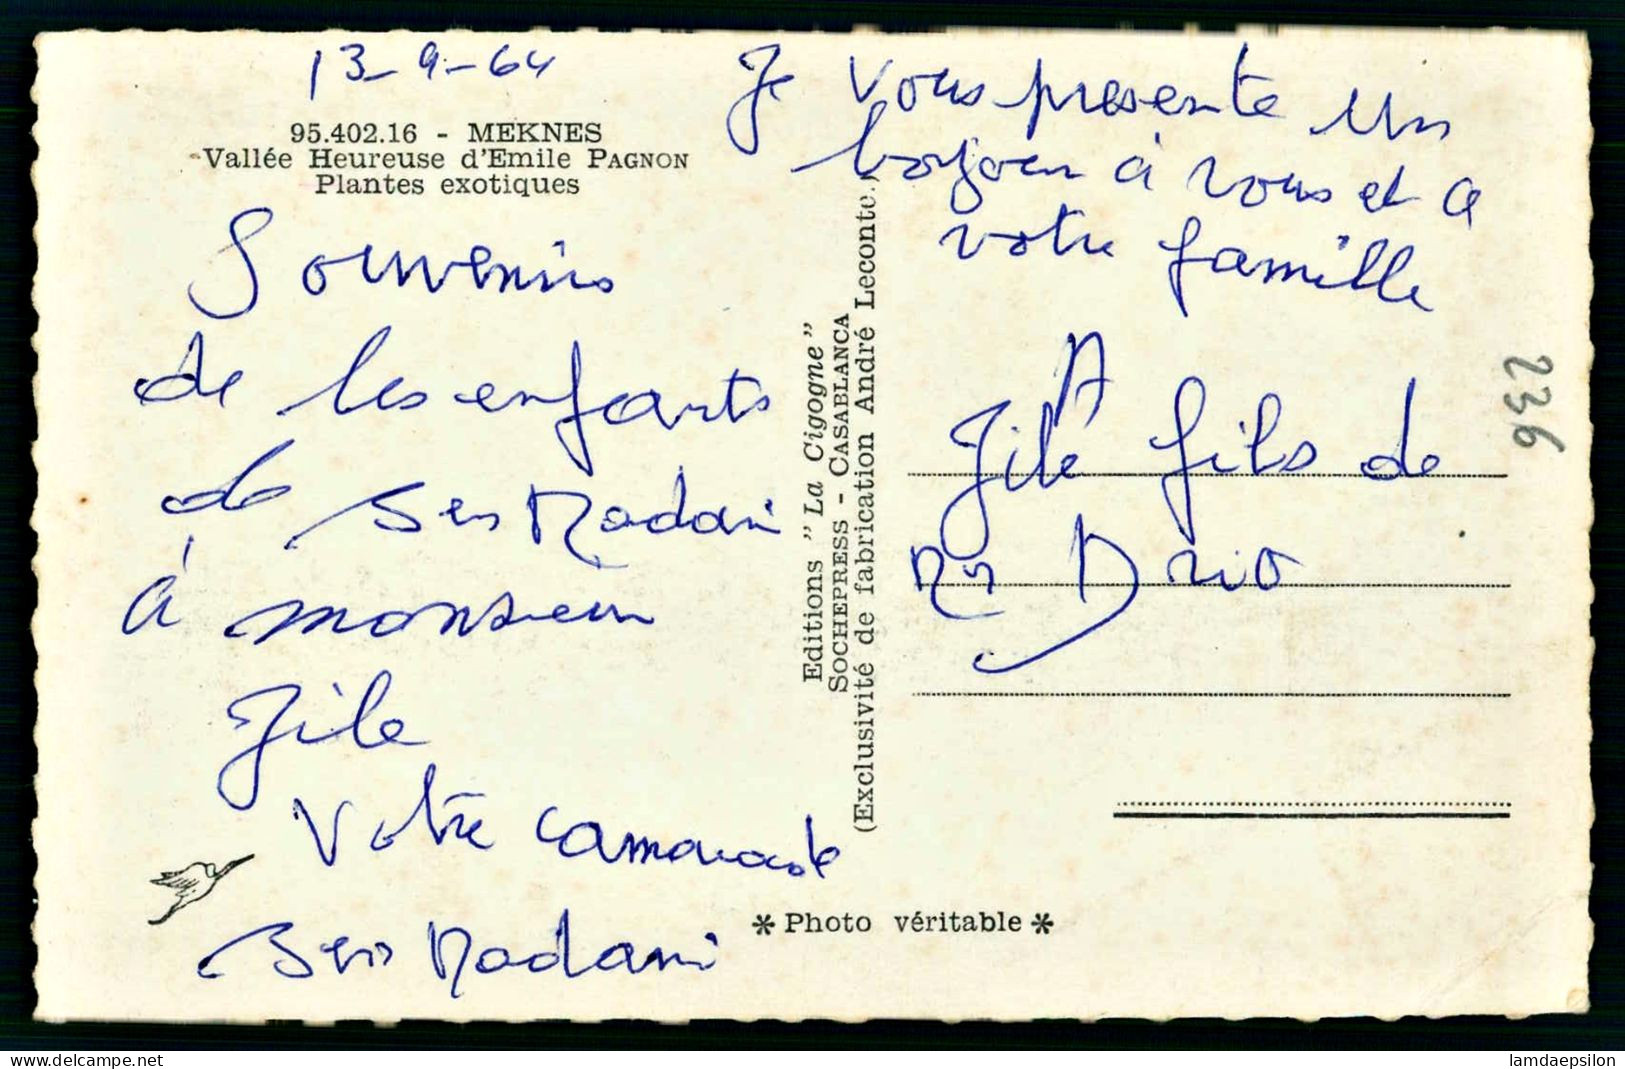 13-9-64
95.402.16 - MEKNES
Vallée Heureuse d'Emile PAGNON
Plantes exotiques
Souvenirs
de les enfants
de Ben Madani
à monsieur
Jile
Votre camarade
Ben Madani
Editions "La Cigogne"
SOCHEPRESS - CASABLANCA
(Exclusivité de fabrication André Leconte.)
Je vous presente un
bonjour à vous et a
votre famille
A
Jile fils de
Mr Drio
236
* Photo véritable *
delcampe.net
lamdaepsilon